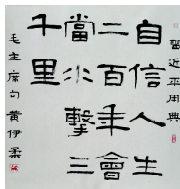 習近平用典
自信人生
二百年會
當水擊三
千里
毛主席句 黄伊柔